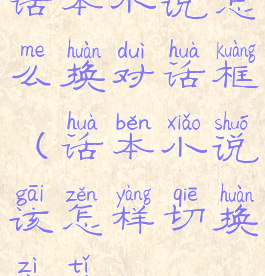 话本小说怎
me huàn duì huà kuàng
么换对话框
huà běn xiǎo shuō
(话本小说
gāi zěn yàng qiē huàn
该怎样切换
zì tǐ